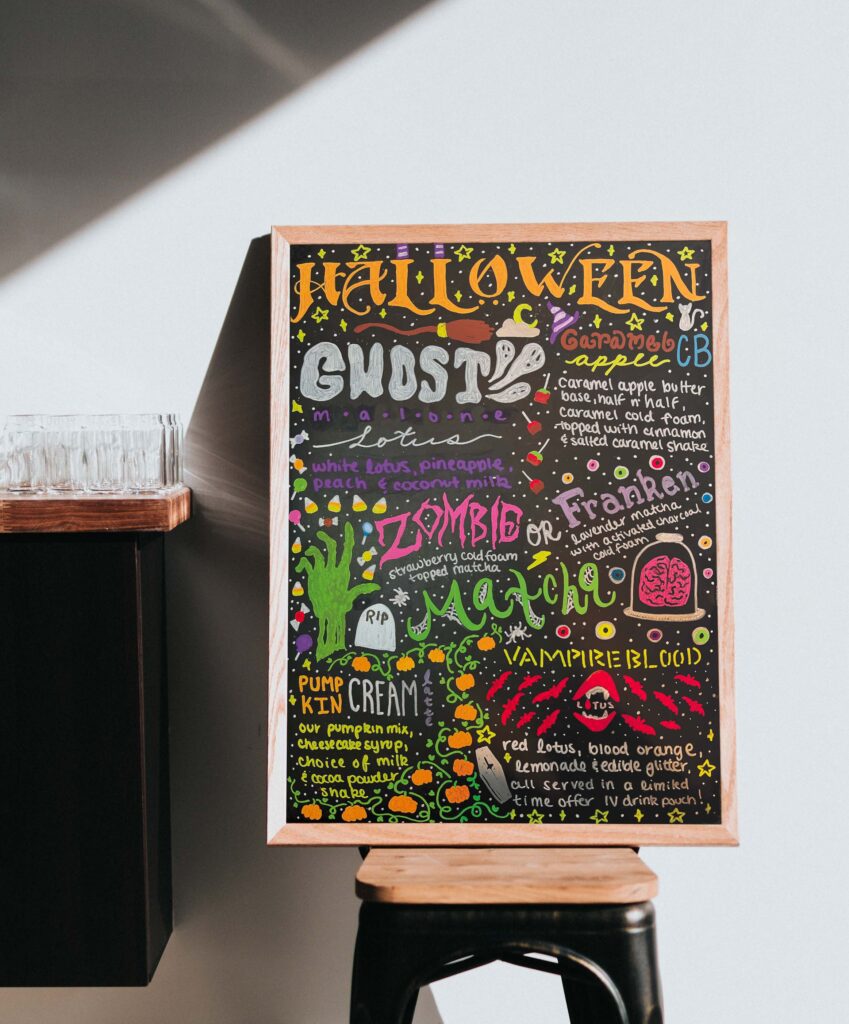 HALLOWEEN
GHOST
malone
Lotus
white lotus, pineapple,
peach & coconut milk
Caramel
apple CB
caramel apple butter
base, half n' half,
caramel cold foam,
topped with cinnamon
& salted caramel shake
ZOMBIE
strawberry cold foam
topped matcha
OR
Franken
lavender matcha
with activated charcoal
cold foam
Matcha
RIP
PUMP
KIN CREAM latte
our pumpkin mix,
cheesecake syrup,
choice of milk
& cocoa powder
shake
VAMPIRE BLOOD
LOTUS
red lotus, blood orange,
lemonade & edible glitter,
all served in a limited
time offer IV drink pouch!